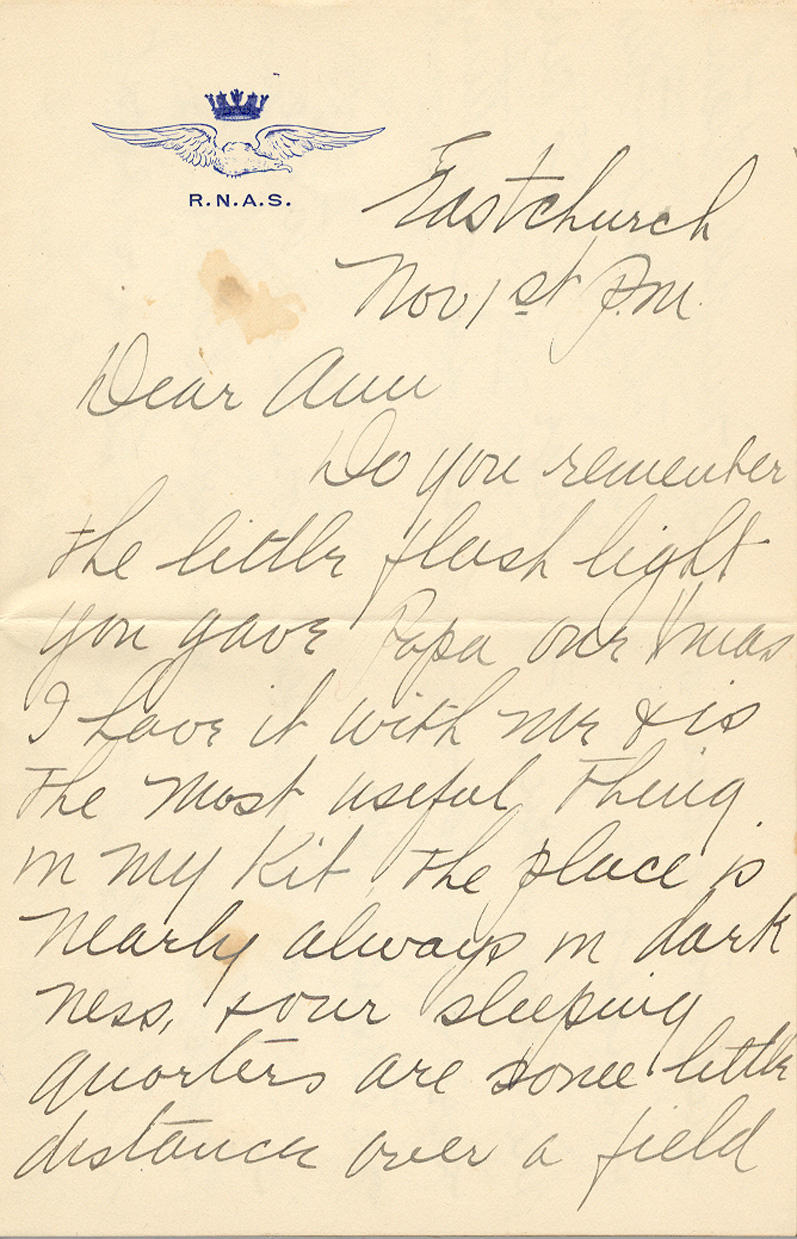 R.N.A.S.
Eastchurch
Nov 1st P.M.
Dear Ann
Do you remember
the little flash light
you gave Papa one Xmas
I have it with me & is
the most useful thing
in my Kit, the place is
nearly always in dark
ness, & our sleeping
quarters are some little
distance over a field